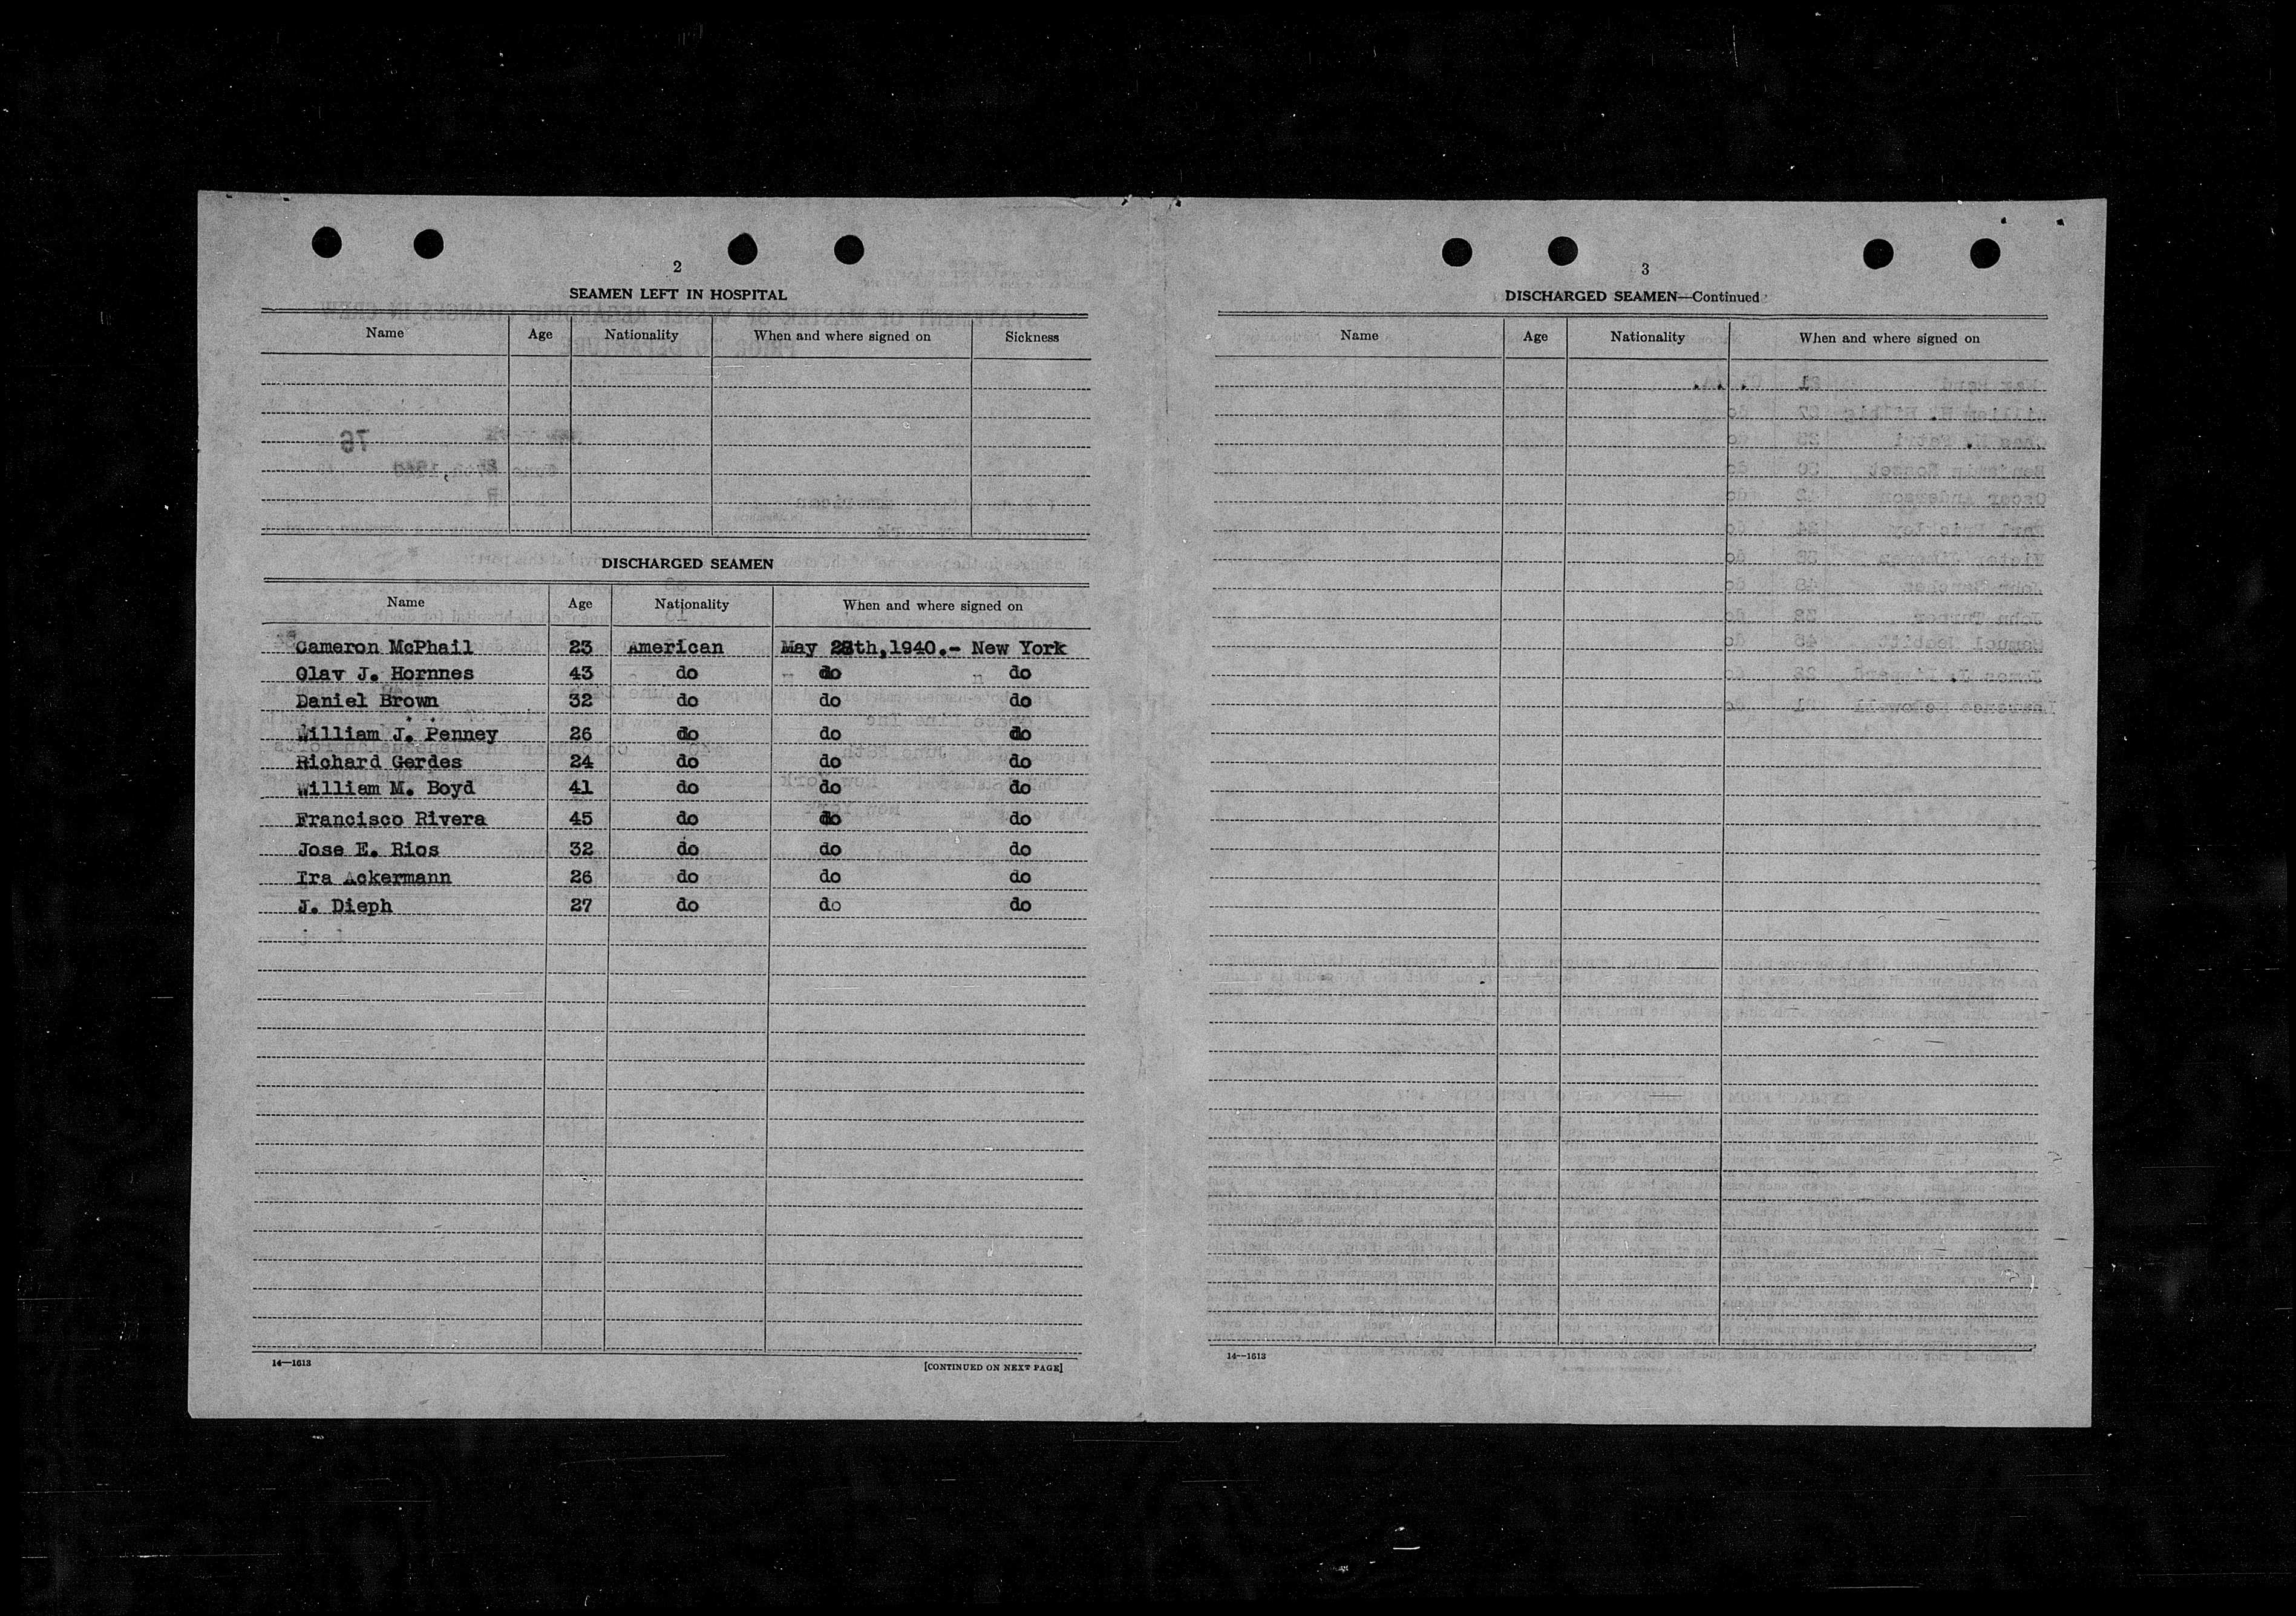 2
SEAMEN LEFT IN HOSPITAL
Name Age Nationality When and where signed on Sickness
DISCHARGED SEAMEN
Name Age Nationality When and where signed on
Cameron McPhail 23 American May 28th,1940.- New York
Olav J. Hornnes 43 do do do
Daniel Brown 32 do do do
William J. Penney 26 do do do
Richard Gerdes 24 do do do
William M. Boyd 41 do do do
Francisco Rivera 45 do do do
Jose E. Rios 32 do do do
Ira Ackermann 26 do do do
J. Dieph 27 do do do
14—1613 [CONTINUED ON NEXT PAGE]
3
DISCHARGED SEAMEN—Continued
Name Age Nationality When and where signed on
14—1613